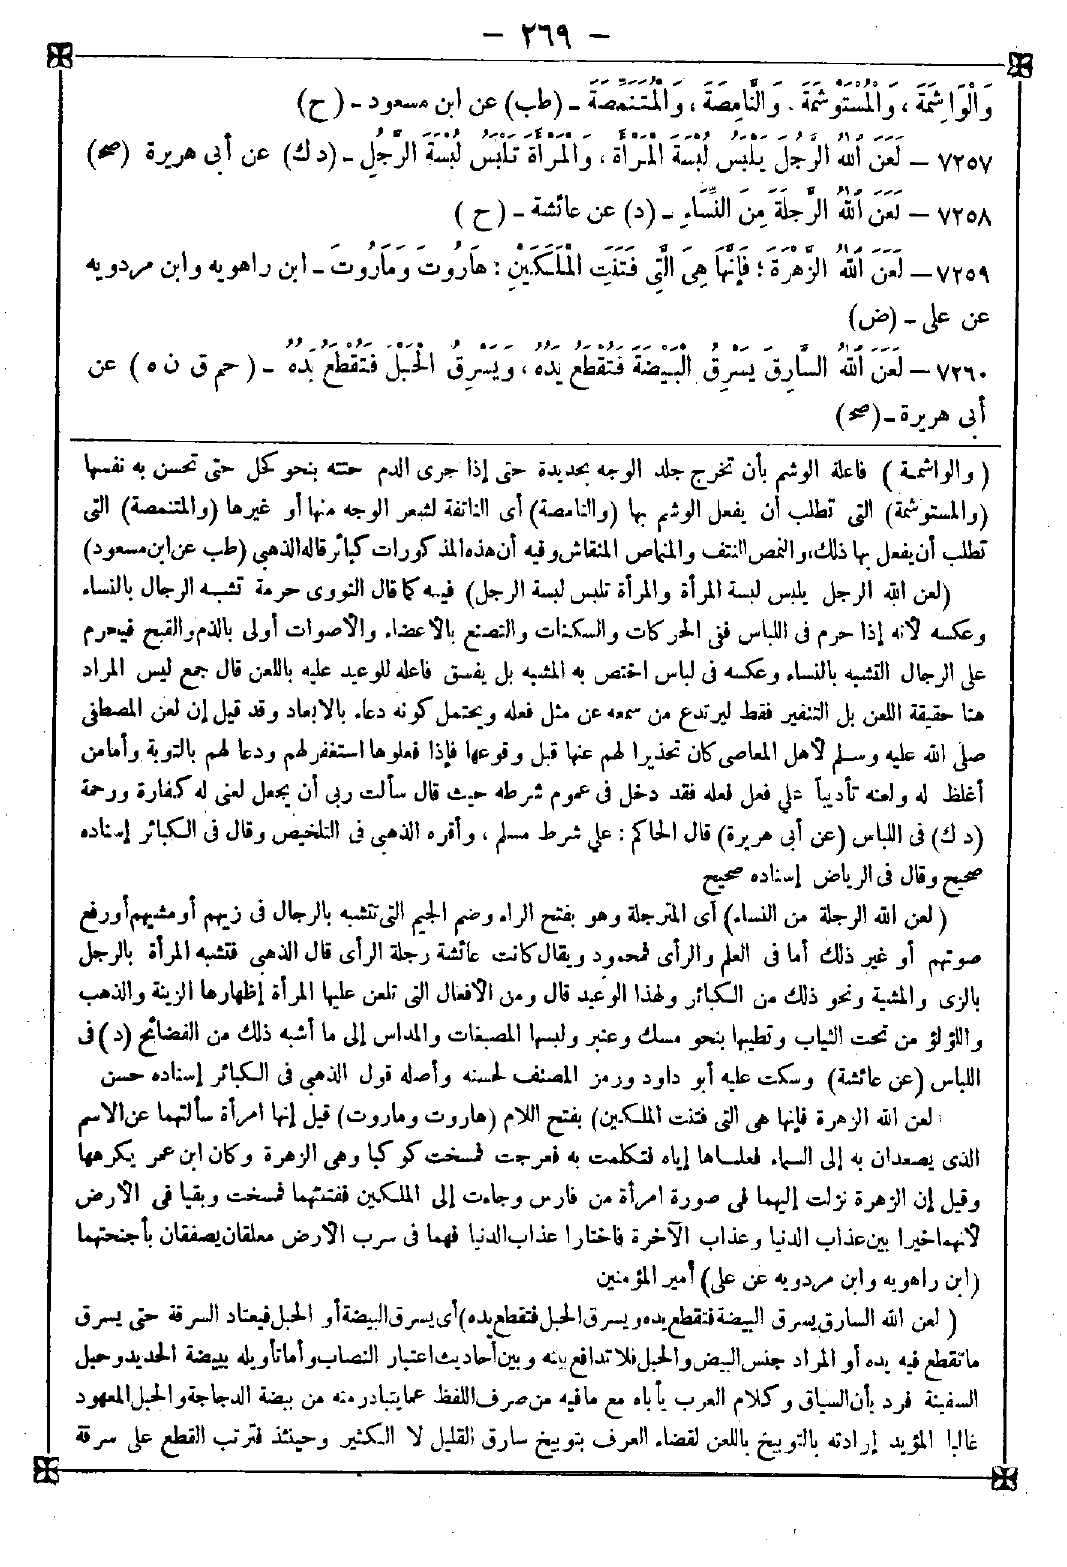 - ٢٦٩ -
وَالْوَاشِمَةَ ، وَالْمُسْتَوْشِمَةَ . وَالنَّامِصَةَ ، وَالْمُتَنَمِّصَةَ - (طب) عن ابن مسعود - ( ح)
٧٢٥٧ - لَعَنَ اللهُ الرَّجُلَ يَلْبَسُ لُبْسَةَ الْمَرْأَةِ ، وَالْمَرْأَةَ تَلْبَسُ لُبْسَةَ الرَّجُلِ - (د ك) عن أبى هريرة (صح)
٧٢٥٨ - لَعَنَ اللهُ الرَّجِلَةَ مِنَ النِّسَاءِ - (د) عن عائشة - ( ح )
٧٢٥٩ - لَعَنَ اللهُ الزَّهْرَةَ ؛ فَإِنَّهَا هِىَ الَّتِى فَتَنَتِ الْمَلَكَيْنِ : هَارُوتَ وَمَارُوتَ - ابن راهويه وابن مردويه
عن على - (ض)
٧٢٦٠ - لَعَنَ اللهُ السَّارِقَ يَسْرِقُ الْبَيْضَةَ فَتُقْطَعُ يَدُهُ ، وَيَسْرِقُ الْحَبْلَ فَتُقْطَعُ يَدُهُ - ( حم ق ن ه ) عن
أبى هريرة - (صح)
( والواشمة ) فاعلة الوشم بأن تخرج جلد الوجه بحديدة حتى إذا جرى الدم حشته بنحو كحل حتى تحسن به نفسها
(والمستوشمة) التى تطلب أن يفعل الوشم بها (والنامصة) أى الناتفة لشعر الوجه منها أو غيرها (والمتنمصة) التى
تطلب أن يفعل بها ذلك، والنمص النتف والمنماص المنقاش وفيه أن هذه المذكورات كبائر قاله الذهبى (طب عن ابن مسعود)
(لعن الله الرجل يلبس لبسة المرأة والمرأة تلبس لبسة الرجل) فيه كما قال النووى حرمة تشبه الرجال بالنساء
وعكسه لأنه إذا حرم فى اللباس ففى الحركات والسكنات والتصنع بالأعضاء والأصوات أولى بالذم والقبح فيحرم
على الرجال التشبه بالنساء وعكسه فى لباس اختص به المشبه بل يفسق فاعله للوعيد عليه باللعن قال جمع ليس المراد
هنا حقيقة اللعن بل التنفير فقط ليرتدع من سمعه عن مثل فعله ويحتمل كونه دعاء بالإبعاد وقد قيل إن لعن المصطفى
صلى الله عليه وسلم لأهل المعاصى كان تحذيرا لهم عنها قبل وقوعها فإذا فعلوها استغفر لهم ودعا لهم بالتوبة وأما من
أغلظ له ولعنه تأديباً على فعل فعله فقد دخل فى عموم شرطه حيث قال سألت ربى أن يجعل لعنى له كفارة ورحمة
(د ك) فى اللباس (عن أبى هريرة) قال الحاكم : على شرط مسلم ، وأقره الذهبى فى التلخيص وقال فى الكبائر إسناده
صحيح وقال فى الرياض إسناده صحيح
( لعن الله الرجلة من النساء) أى المترجلة وهو بفتح الراء وضم الجيم التى تتشبه بالرجال فى زيهم أو مشيهم أو رفع
صوتهم أو غير ذلك أما فى العلم والرأى فمحمود ويقال كانت عائشة رجلة الرأى قال الذهبى فتشبه المرأة بالرجل
بالزى والمشية ونحو ذلك من الكبائر ولهذا الوعيد قال ومن الأفعال التى تلعن عليها المرأة إظهارها الزينة والذهب
واللؤلؤ من تحت الثياب وتطيبها بنحو مسك وعنبر ولبسها المصبغات والمداس إلى ما أشبه ذلك من الفضائح (د) فى
اللباس (عن عائشة) وسكت عليه أبو داود ورمز المصنف لحسنه وأصله قول الذهبى فى الكبائر إسناده حسن
لعن الله الزهرة فإنها هى التى فتنت الملكين) بفتح اللام (هاروت وماروت) قيل إنها امرأة سألتهما عن الاسم
الذى يصعدان به إلى السماء فعلماها إياه فتكلمت به فعرجت فمسخت كوكبا وهى الزهرة وكان ابن عمر يكرهها
وقيل إن الزهرة نزلت إليهما فى صورة امرأة من فارس وجاءت إلى الملكين ففتنتهما فمسخت وبقيا فى الأرض
لأنهما خيرا بين عذاب الدنيا وعذاب الآخرة فاختارا عذاب الدنيا فهما فى سرب الأرض معلقان يصفقان بأجنحتهما
(ابن راهويه وابن مردويه عن على) أمير المؤمنين
( لعن الله السارق يسرق البيضة فتقطع يده ويسرق الحبل فتقطع يده) أى يسرق البيضة أو الحبل فيعتاد السرقة حتى يسرق
ما تقطع فيه يده أو المراد جنس البيض والحبل فلا تدافع بينه وبين أحاديث اعتبار النصاب وأما تأويله ببيضة الحديد وحبل
السفينة فرد بأن السياق وكلام العرب يأباه مع ما فيه من صرف اللفظ عما يتبادر منه من بيضة الدجاجة والحبل المعهود
غالبا المؤيد إرادته بالتوبيخ باللعن لقضاء العرف بتوبيخ سارق القليل لا الكثير وحينئذ فترتب القطع على سرقة